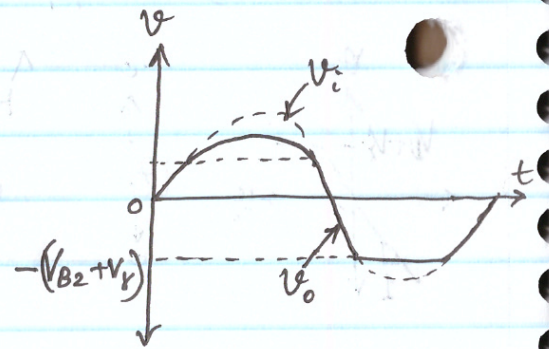 v
v_i
t
0
-(V_B2+V_γ)
v_o